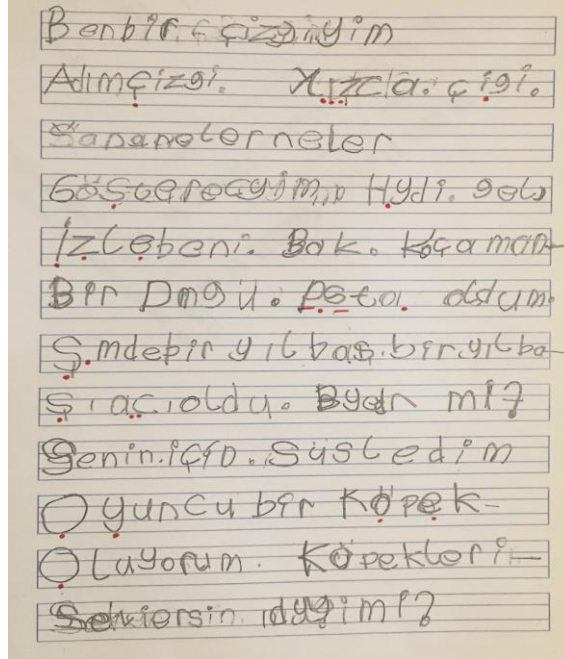 Benbir çizgiyim
Adımçizgi. Xızcla. çigi.
Sananelerneler
Göşterecgyim. Hydi. gel
İzlebeni. Bak. Koçaman-
Bir Dmgü. Posta. oldum.
Ş.mdebir yılbaş.bir.yılba-
şıaçıoldu. Bgedn mi?
Senin.için.Süsledim
Oyuncu bir Köpek-
Oluyorum. Köpekleri-
Seviersin. idyğimi?